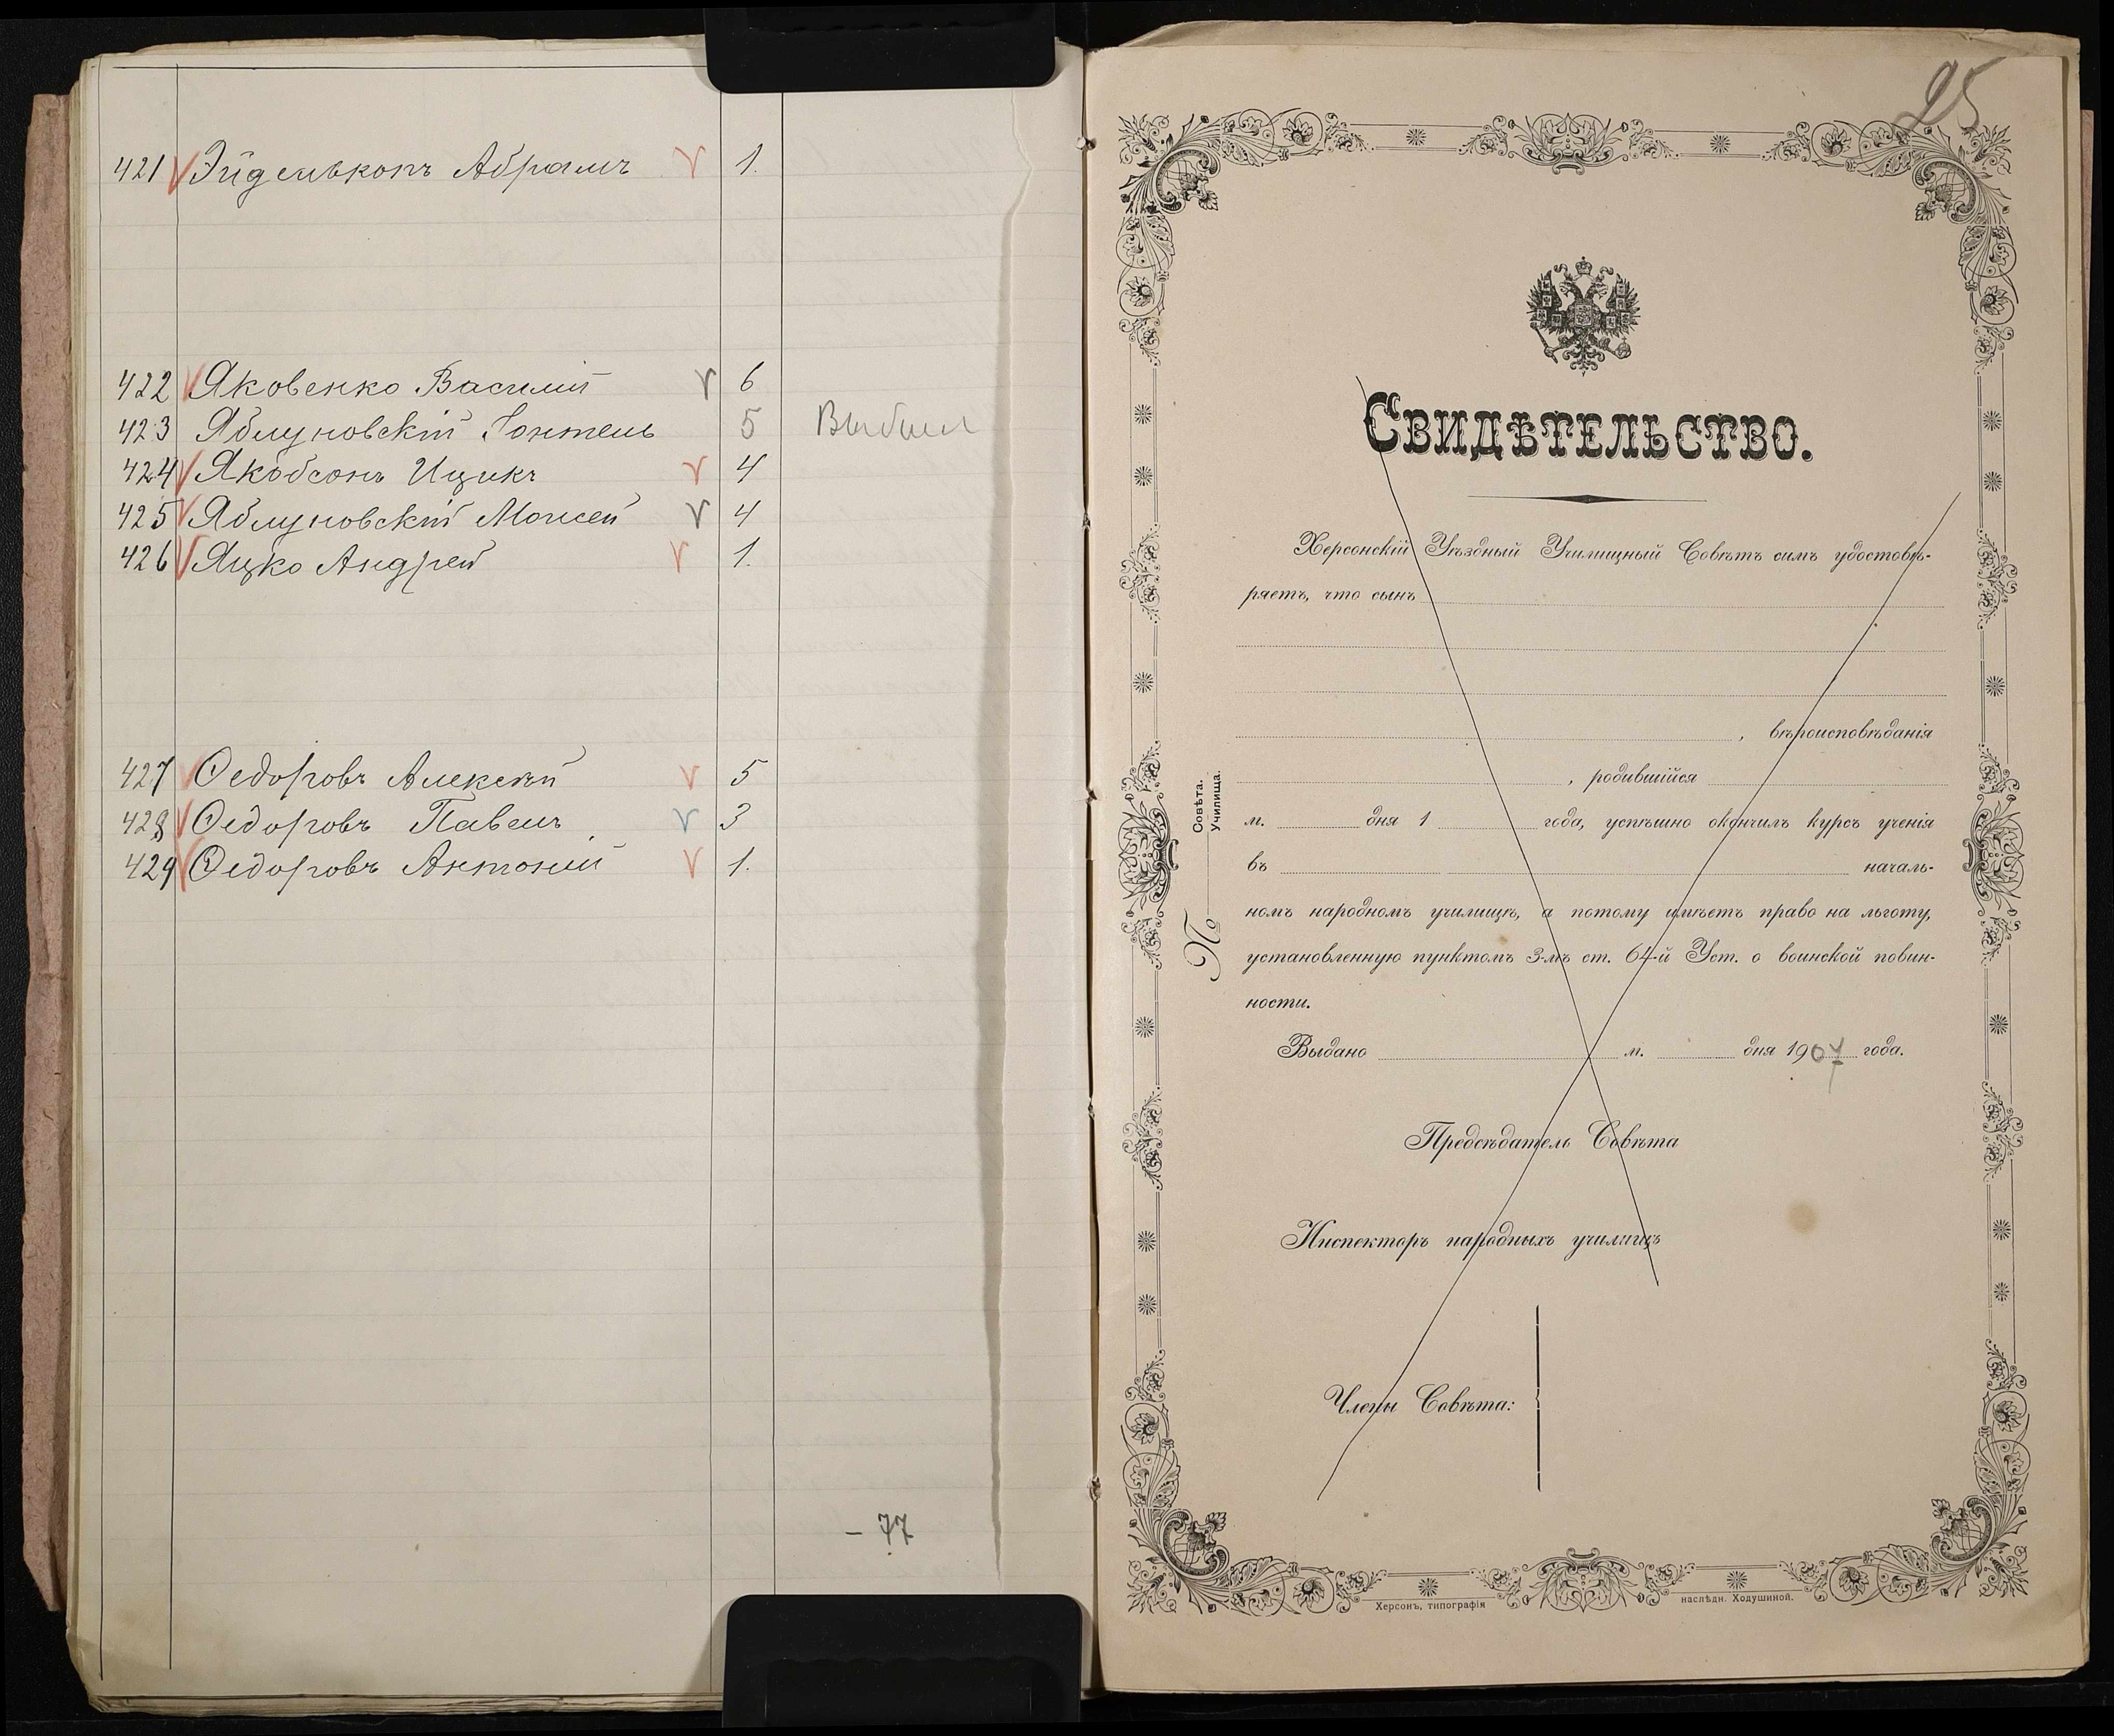 421 Эйдельконъ Абрамъ 1.
422 Яковенко Василій 6
423 Яблуновскій 5 Выбыл
424 Якобсонъ Ицикъ 4
425 Яблуновскій Моисей 4
426 Яцко Андрей 1.
427 Ѳедоровъ Алексѣй 5
428 Ѳедоровъ Павелъ 3
429 Ѳедоровъ Антоній 1.
– 77
25
Свидѣтельство.
Херсонскій Уѣздный Училищный Совѣтъ симъ удостовѣ-
ряетъ, что сынъ
, вѣроисповѣданія
, родившійся
м. дня 1 года, успѣшно окончилъ курсъ ученія
въ началь-
номъ народномъ училищѣ, а потому имѣетъ право на льготу,
установленную пунктомъ 3-мъ ст. 64-й Уст. о воинской повин-
ности.
Выдано м. дня 1907 года.
Предсѣдатель Совѣта
Инспекторъ народныхъ училищъ
Члены Совѣта:
По Совѣта.
Училища.
Херсонъ, типографія наслѣдн. Ходушиной.